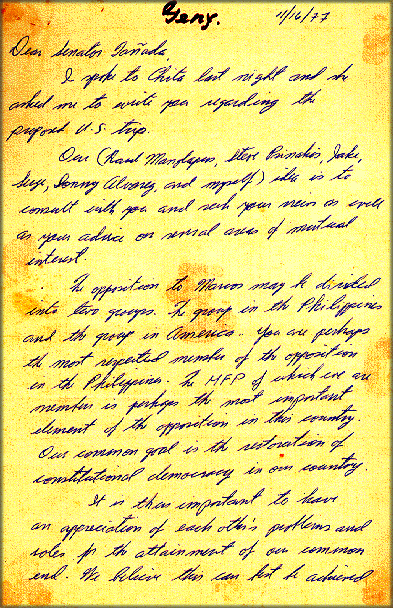 Geny.
11/16/77
Dear Senator Tañada
I spoke to Chita last night and she
asked me to write you regarding the
proposed U.S. trip.
Our (Raul Manglapus, Steve Psinakis, Jake,
Serge, Sonny Alvarez, and myself) idea is to
consult with you and seek your views as well
as your advice on several areas of mutual
interest.
The opposition to Marcos may be divided
into two groups. The group in the Philippines
and the group in America. You are perhaps
the most respected member of the opposition
in the Philippines. The MFP of which we are
members is perhaps the most important
element of the opposition in this country.
Our common goal is the restoration of
constitutional democracy in our country.
It is thus important to have
an appreciation of each other's problems and
roles for the attainment of our common
end. We believe this can best be achieved